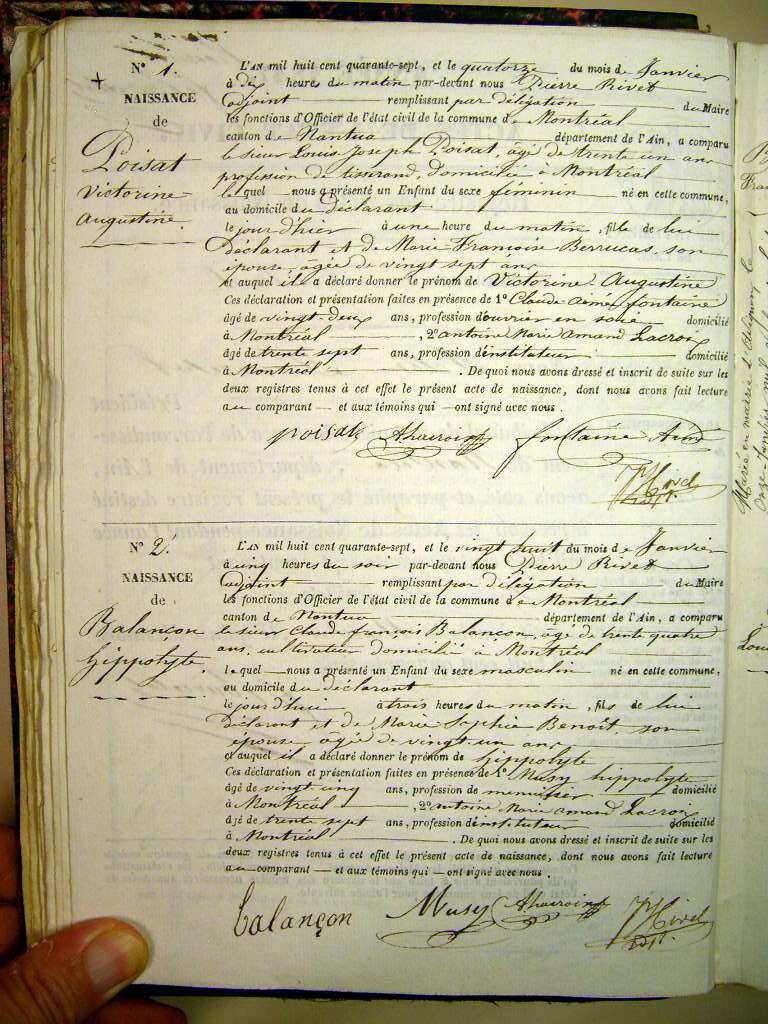 N° 1.
NAISSANCE
de
Poisat
Victorine
Augustine.
L'AN mil huit cent quarante-sept, et le quatorze du mois de Janvier
à dix heures du matin par-devant nous Pierre Rivet
adjoint remplissant par délégation du Maire
les fonctions d'Officier de l'état civil de la commune de Montréal
canton de Nantua département de l'Ain, a comparu
le sieur Louis Joseph Poisat, âgé de trente un ans
profession de tisserand, domicilié à Montréal
lequel nous a présenté un Enfant du sexe féminin né en cette commune,
au domicile du déclarant
le jour d'hier à une heure du matin, fille de lui
déclarant et de Marie Françoise Berrucas, son
épouse, âgée de vingt sept ans
et auquel il a déclaré donner le prénom de Victorine Augustine
Ces déclaration et présentation faites en présence de 1° Claude aimé fontaine
âgé de vingt deux ans, profession d'ouvrier en soie domicilié
à Montréal, 2° antoine Marie amand Lacroix
âgé de trente sept ans, profession d'instituteur domicilié
à Montréal. De quoi nous avons dressé et inscrit de suite sur les
deux registres tenus à cet effet le présent acte de naissance, dont nous avons fait lecture
au comparant et aux témoins qui ont signé avec nous.
poisat fontaine Aimé
N° 2.
NAISSANCE
de
Balançon
hippolyte.
L'AN mil huit cent quarante-sept, et le vingt huit du mois de Janvier
à cinq heures du soir par-devant nous Pierre Rivet
adjoint remplissant par délégation du Maire
les fonctions d'Officier de l'état civil de la commune de Montréal
canton de Nantua département de l'Ain, a comparu
le sieur Claude françois Balançon, âgé de trente quatre
ans, cultivateur domicilié à Montréal
lequel nous a présenté un Enfant du sexe masculin né en cette commune,
au domicile du déclarant
le jour d'hui à trois heures du matin, fils de lui
déclarant et de Marie Sophie Benoît, son
épouse âgée de vingt-un ans
et auquel il a déclaré donner le prénom de hippolyte
Ces déclaration et présentation faites en présence de 1° Musy hippolyte
âgé de vingt cinq ans, profession de menuisier domicilié
à Montréal, 2° antoine Marie amand Lacroix
âgé de trente sept ans, profession d'instituteur domicilié
à Montréal. De quoi nous avons dressé et inscrit de suite sur les
deux registres tenus à cet effet le présent acte de naissance, dont nous avons fait lecture
au comparant et aux témoins qui ont signé avec nous.
balançon Musy